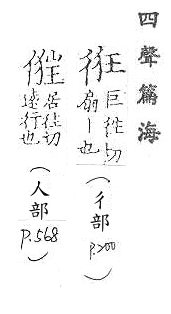 四聲篇海
巨往切
扇丨也
(彳部
P.200)
居往切
遠行也
(人部
P.568)